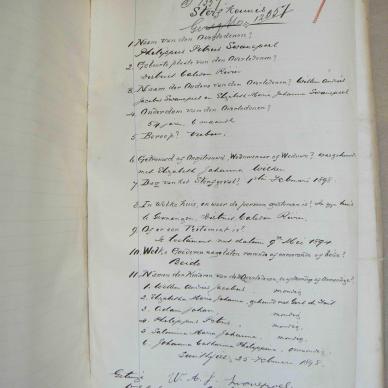 Sterf Kennis
12057
1. Naam van den Overledenen?
Philippus Petrus Swanepoel
2. Geboorte plaats van den Overledenen?
District Caledon Rivier
3. Naam der Ouders van den Overledenen? Willem Andries
Jacobus Swanepoel en Elizabeth Maria Johanna Swanepoel
4. Ouderdom van den Overledenen?
54 jaar 6 maanden
5. Beroep? Veeboer.
6. Getrouwd of Ongetrouwd, Weduwenaar of Weduwe?
met Elizabeth Johanna
7. Dag van het Sterfgeval? 1ste Februari 1898.
8. In Welke huis, en waar de persoon gestorven is? In zyn huis
District Caledon Rivier.
9. Of er een Testament is?
Je testament met datum 9de Mei 1894
10. Welke Goederen nagelaten, roerende of onroerende of beide?
Beide
11. Namen der Kinderen van den Overledenen, en of mondig of onmondig?
1. Willem Andries Jacobus, mondig
2. Elizabetha Maria Johanna, gehuwd met
3. Adam Johan, mondig
4. Philippus Petrus, mondig
5. Salomina Maria Johanna, mondig
6. Johanna Catharina Philippina, onmondig
Smithfield, 25 Februari 1898.
W. A. J. Swanepoel